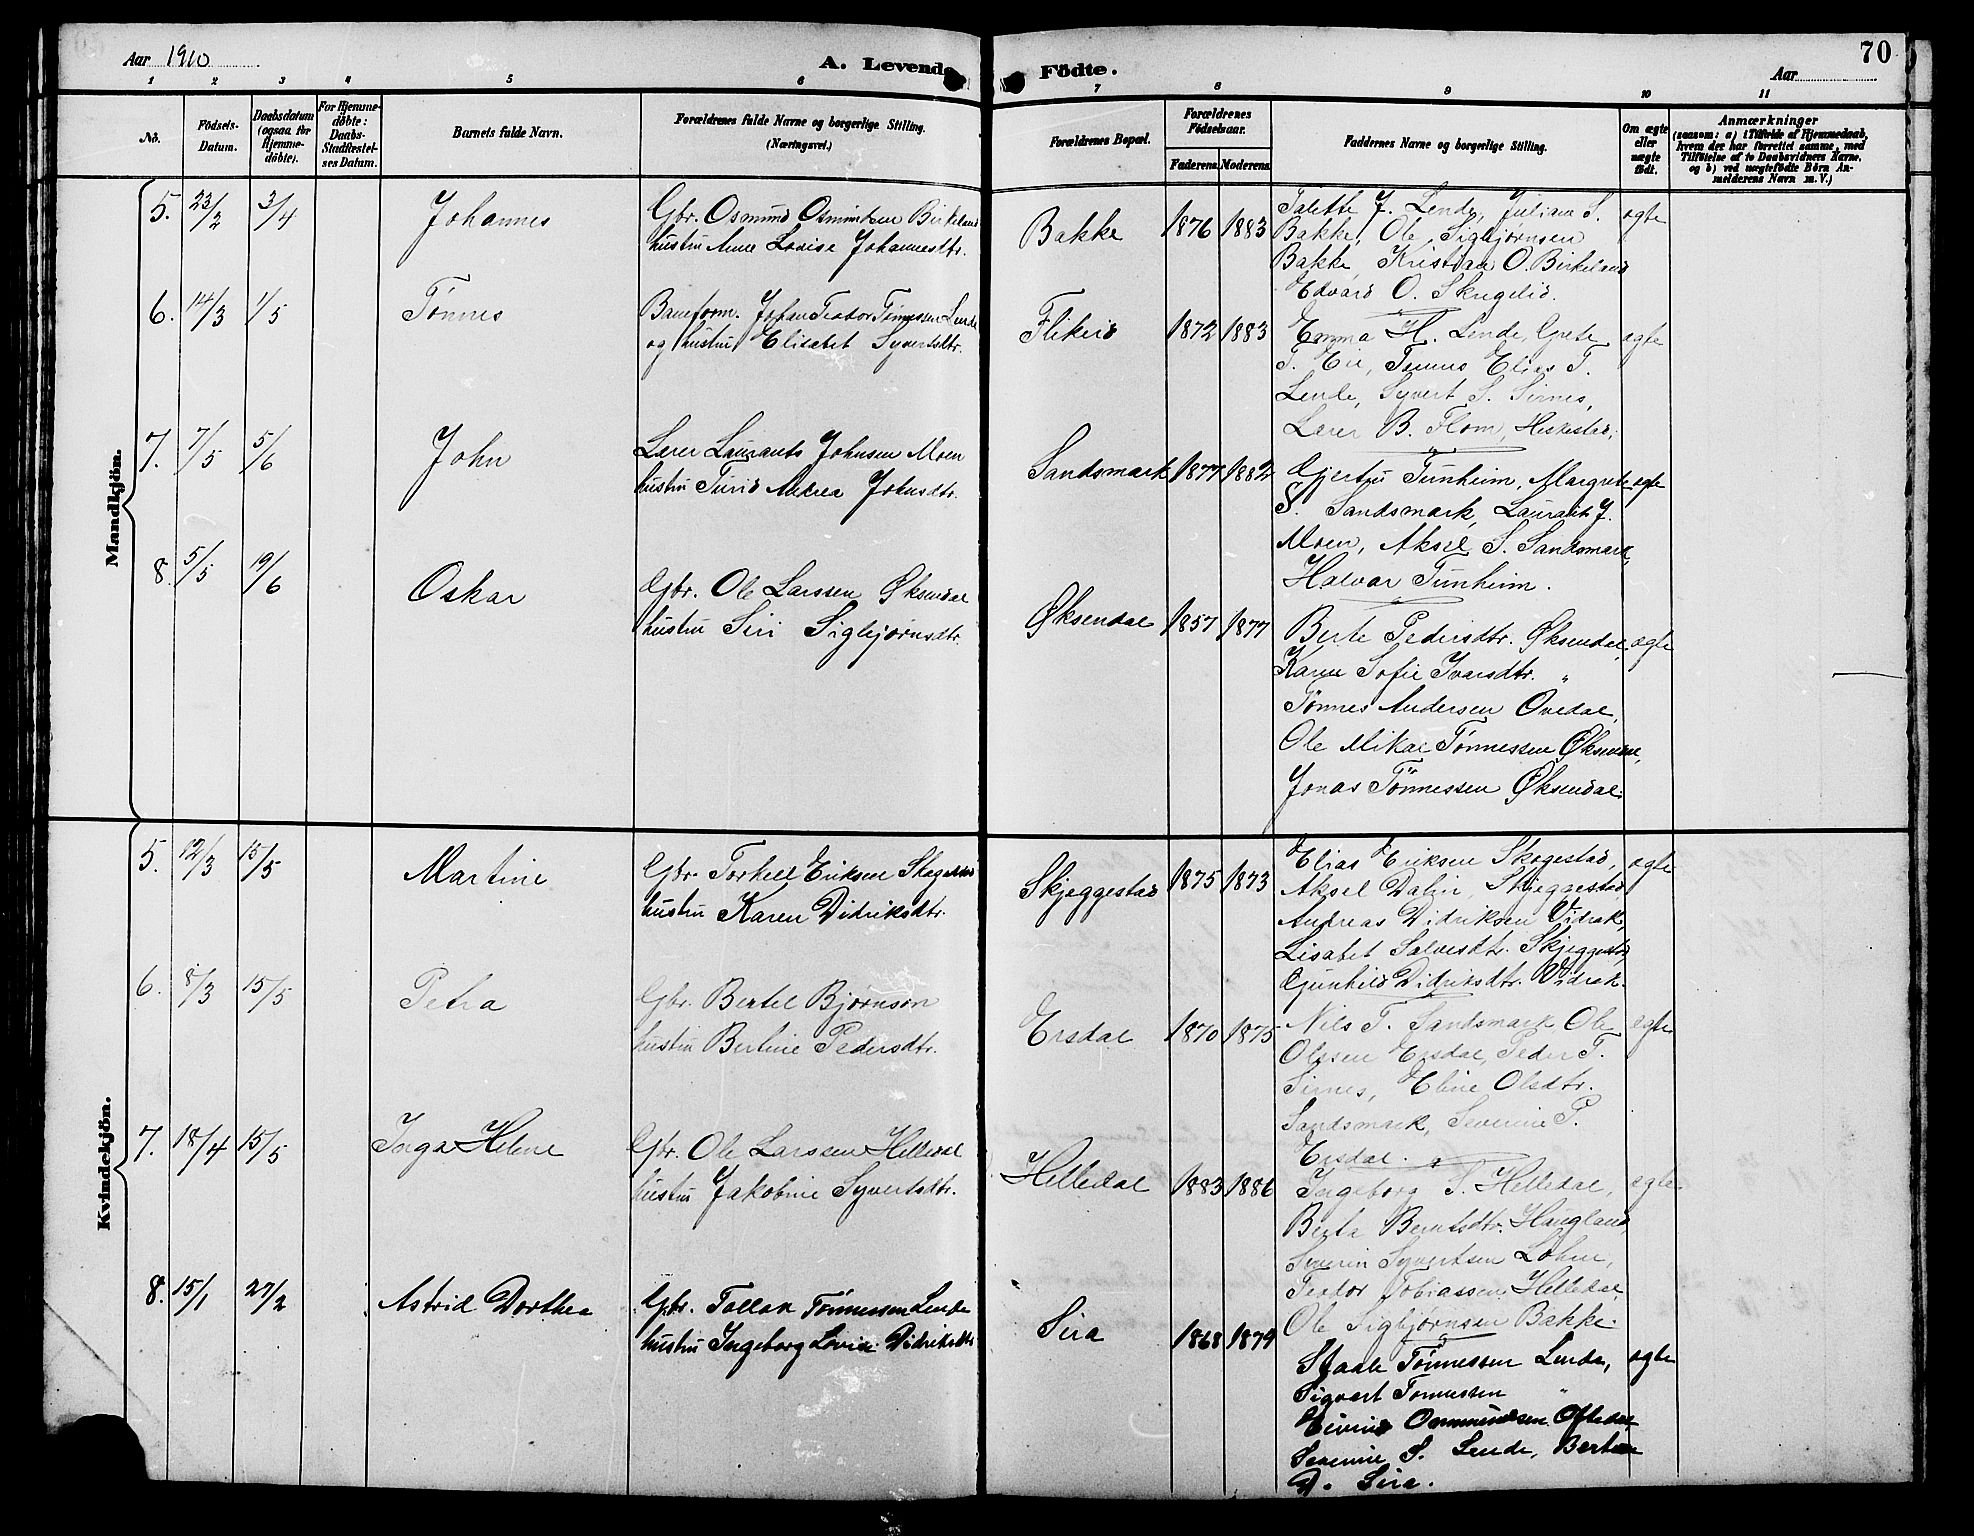 Aar 1910
A. Levende Födte.
70
Aar
1 2 3 4 5 6 7 8 9 10 11
No.
Födsels-
Datum.
Daabsdatum
(ogsaa for
Hjemme-
döbte).
For Hjemme-
döbte:
Daabs-
Stadfæstel-
ses Datum.
Barnets fulde Navn.
Forældrenes fulde Navne og borgerlige Stilling.
(Næringsvei.)
Forældrenes Bopæl.
Forældrenes
Födselsaar.
Faderens. Moderens.
Faddernes Navne og borgerlige Stilling.
Om ægte
eller
uægte
født.
Anmærkninger
(saasom: a) i Tilfælde af Hjemmedaab,
hvem der har forrettet samme, med
Tilföielse af to Daabsvidners Navne,
og b) ved uægtefödte Börn An-
melderens Navn m. V.)
Mandkjön.
5. 23/2 3/4 Johannes
Gbr. Osmund Osmundsen Birkeland
hustru Anne Lovise Johannesdtr.
Bakke 1876 1883
Talette J. Lende, Juliane S.
Bakke, Ole Sigbjørnsen
Bakke, Kristian O. Birkeland
Edvard O. Skregelid.
ægte
6. 14/3 1/5 Tønnes
Baneform. Johan Teodor Tønnesen Lende
og hustru Elisabet Syvertsdtr.
Flikeid 1872 1883
Emma H. Lende, Grete
T. Eie, Tønnes Elias T.
Lende, Syvert S. Sirnes,
Lærer B. Flom, Heskestad.
ægte
7. 7/5 5/6 John
Lærer Laurants Johnsen Moen
hustru Turid Andrea Johnsdtr.
Sandsmark 1877 1882
Gjertru Tunheim, Margrete
S. Sandsmark, Laurants J.
Moen, Aksel S. Sandsmark,
Halvar Tunheim.
ægte
8. 5/5 19/6 Oskar
Gbr. Ole Larssen Øksendal
hustru Siri Sigbjørnsdtr.
Øksendal 1857 1877
Berte Pedersdtr. Øksendal,
Karen Sofie Ivarsdtr. "
Tønnes Andersen Ovedal,
Ole Mikal Tønnessen Øksendal,
Jonas Tønnessen Øksendal.
ægte
Kvindekjön.
5. 12/3 15/5 Martine
Gbr. Torkell Eriksen Skogestad
hustru Karen Didriksdtr.
Skjeggestad 1875 1873
Elias Eriksen Skogestad,
Aksel Dalin, Skjeggestad,
Andreas Didriksen Vidrak,
Lisabet Salvesdtr. Skjeggestad
Gunhild Didriksdtr. Vidrak.
ægte
6. 8/3 15/5 Petra
Gbr. Bertel Bjørnson
hustru Bertine Pedersdtr.
Ersdal 1870 1875
Nils T. Sandsmark, Ole
Olssen Ersdal, Peder T.
Sirnes, Eline Olsdtr.
Sandsmark, Severine P.
Ersdal.
ægte
7. 18/4 15/5 Inga Helene
Gbr. Ole Larssen Helledal
hustru Jakobine Syvertsdtr.
Helledal 1883 1886
Ingeborg S. Helledal,
Berta Berntsdtr. Haugland,
Severin Syvertsen Lohne,
Teodor Tobiassen Helledal
Ole Sigbjørnsen Bakke.
ægte
8. 15/1 27/2 Astrid Dorthea
Gbr. Tollak Tønnessen Lende
hustru Ingeborg Lovise Didriksdtr.
Sira 1868 1879
Staale Tønnessen Lende,
Sigvart Tønnessen "
Eivind Osmundsen Oftedal,
Severine S. Lende, Bertine
D. Sira.
ægte